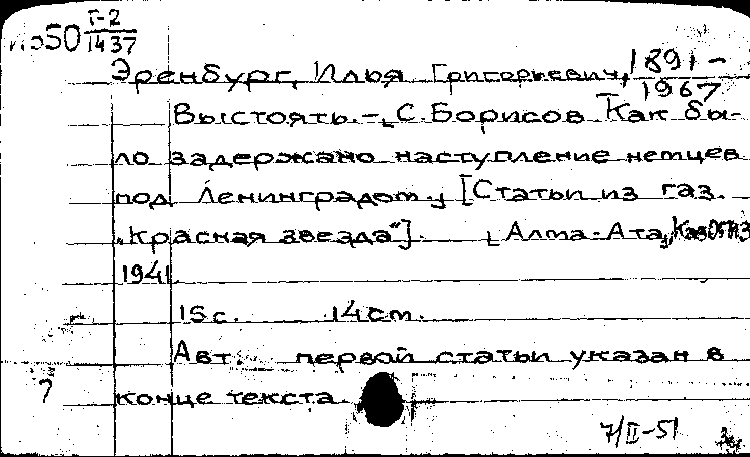 Г-2
по50 1437
Эренбург, Илья Григорьевич, 1891-
1967
Выстоять.-, С. Борисов. Как бы-
ло задержано наступление немцев
под Ленинградом., [Статьи из газ.
„Красная звезда"]. [Алма-Ата], КазОГИЗ
1941.
15 с. 14 см.
Авт. первой статьи указан в
? конце текста.
7/II-51